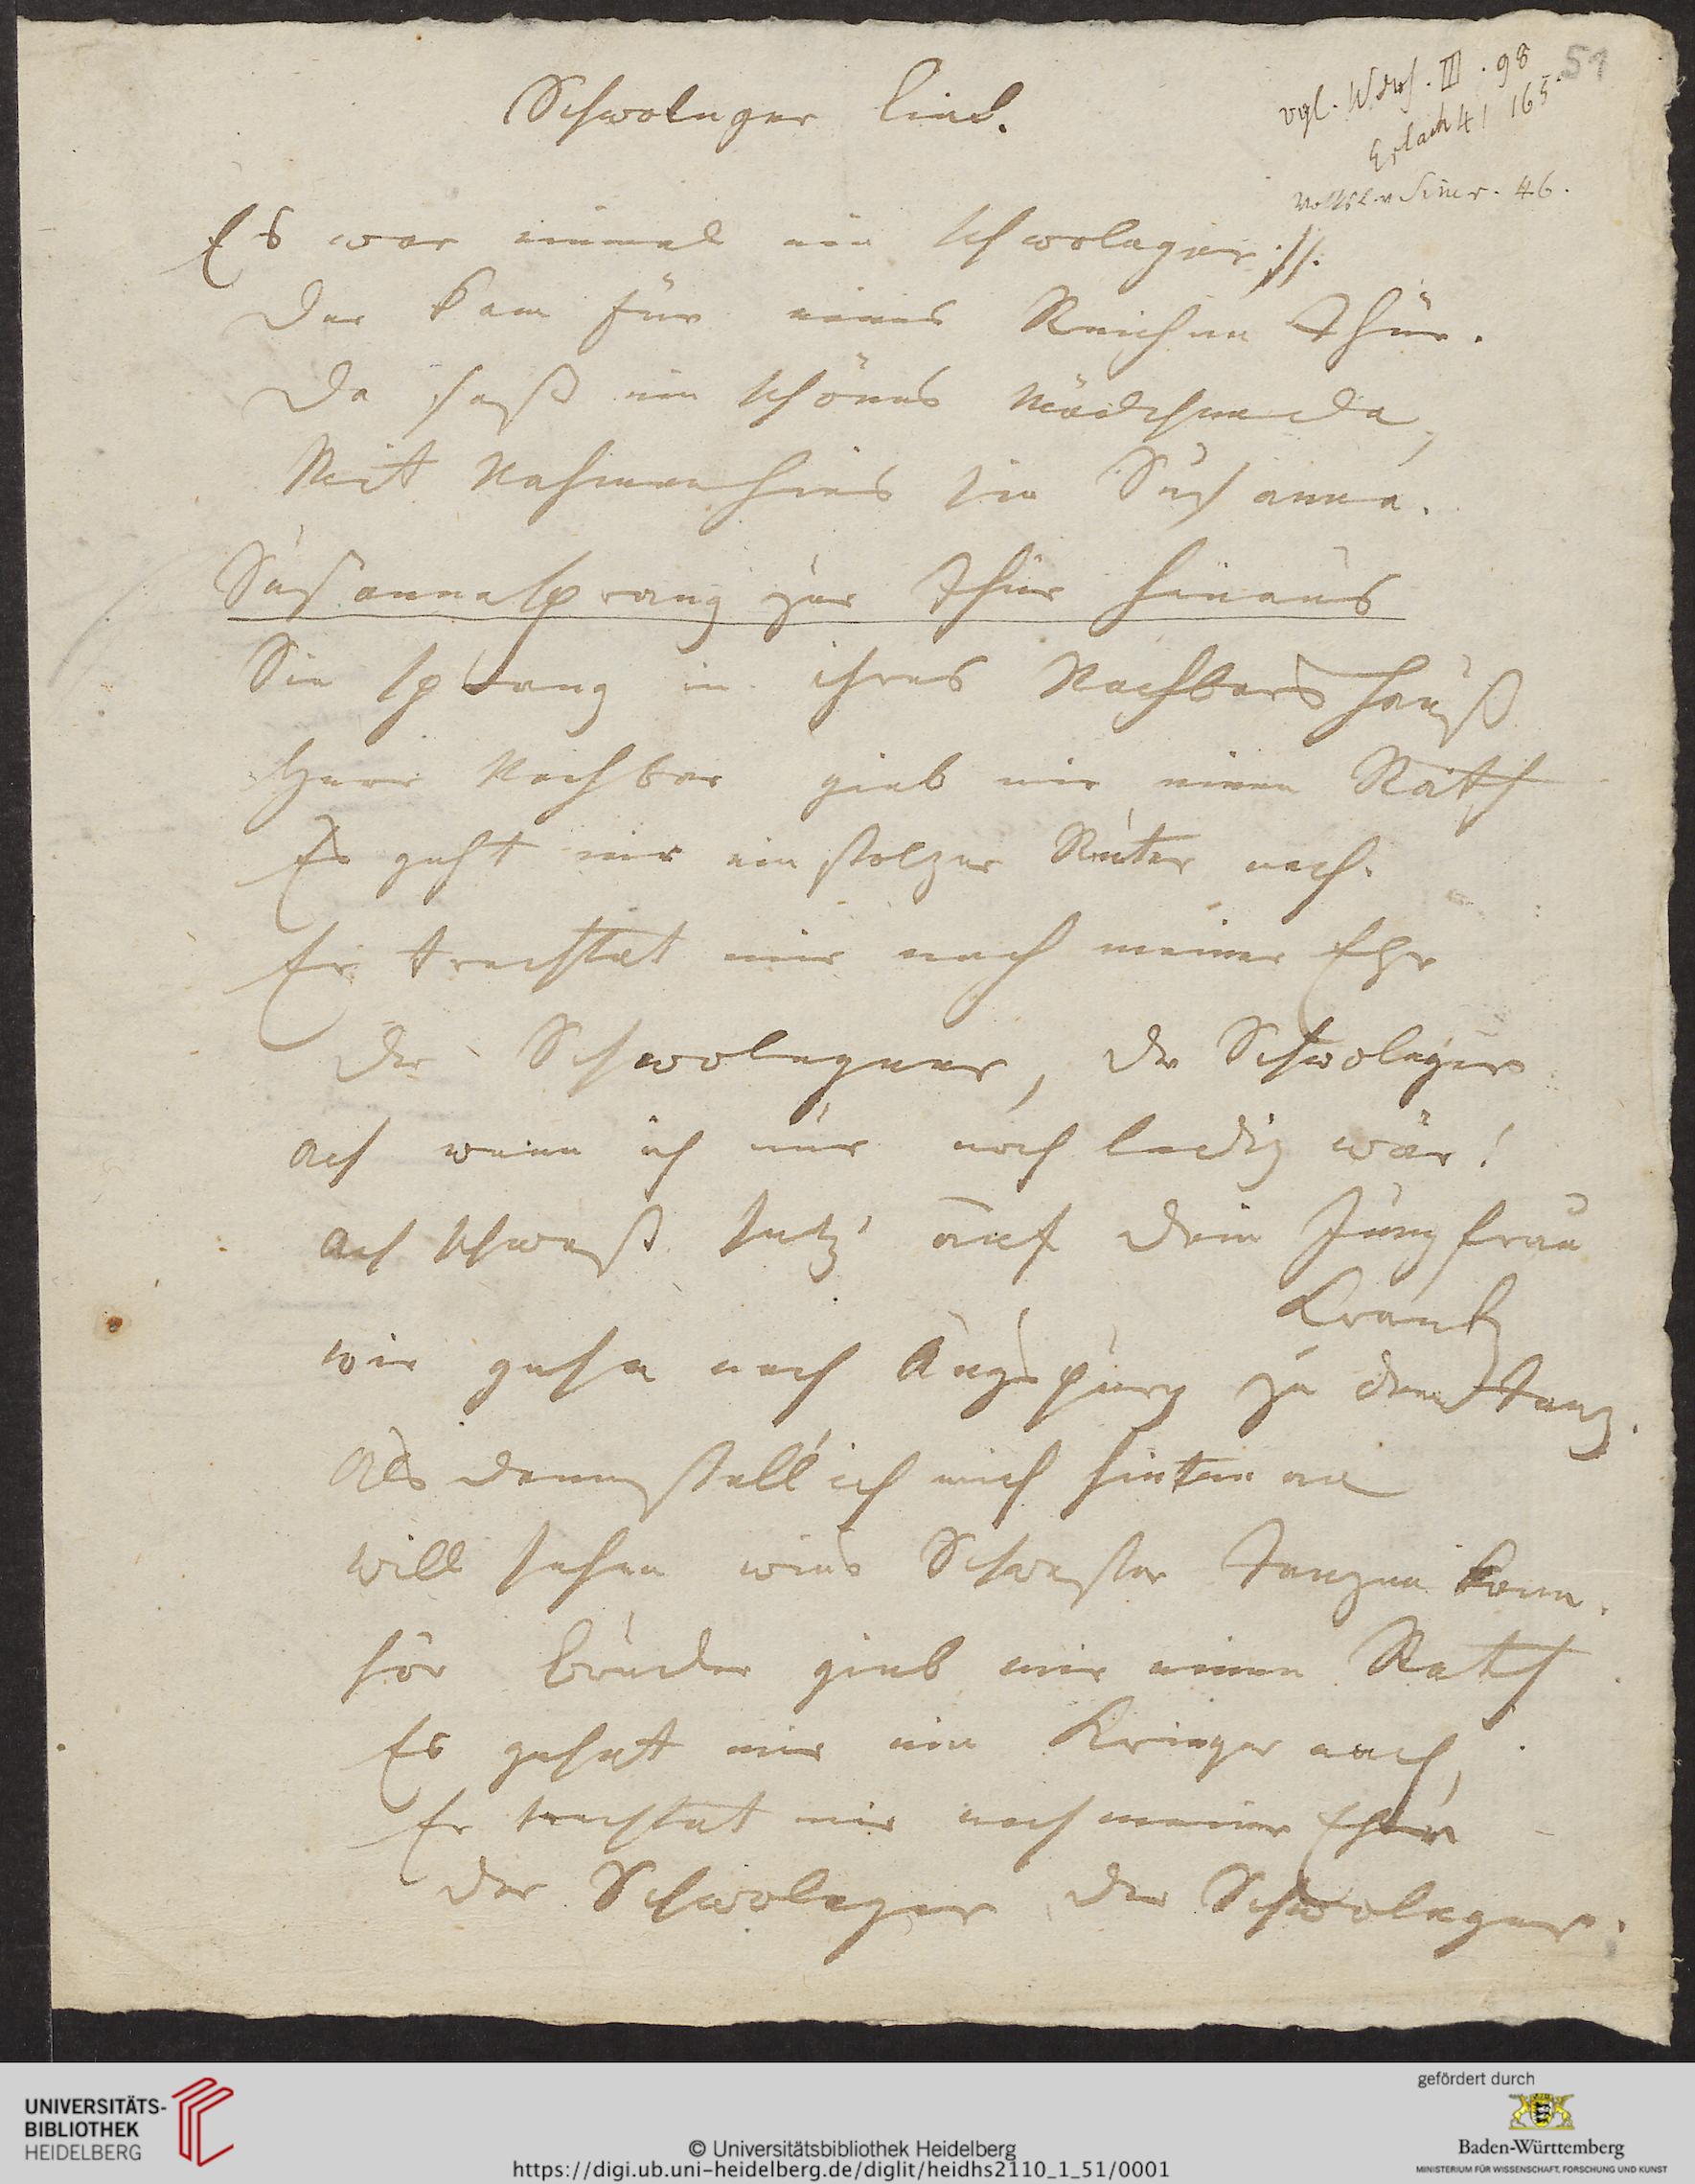 51
vgl. Wdrh. III. 98
Erlach 4 | 165.
Volksl. v Simr. 46.
Schwolnger Lied.
Es war einmal ein schwolager .//.
Der kam für eines Reichen Thür.
Da saß ein schönes Mädchen da,
Mit Nahmen hies sie Susanna.
Susanna sprang zur Thür hinaus
Sie sprang in ihres Nachbars Hauß
Herr Nachbar gieb mir einen Rath
Es geht mir ein stolzer Reuter nach.
Er trachtet mir nach meiner Ehr
Der Schwolegner, der Schwoleger
ach wenn ich nur noch ledig wär!
ach schwest setz' auf dein Jungfrau
Krantz
wir gehen nach Augspurg zu dem Tanz.
Als denn stell' ich mich hinten an
will sehen wies Schwester tanzen kann.
hör bruder gieb mir einen Rath
Es gehet mir ein Krieger nach,
Er trachtet mir nach meiner Ehr
der Schwoleger der Schwoleger.
UNIVERSITÄTS-
BIBLIOTHEK
HEIDELBERG
© Universitätsbibliothek Heidelberg
https://digi.ub.uni-heidelberg.de/diglit/heidhs2110_1_51/0001
gefördert durch
Baden-Württemberg
MINISTERIUM FÜR WISSENSCHAFT, FORSCHUNG UND KUNST